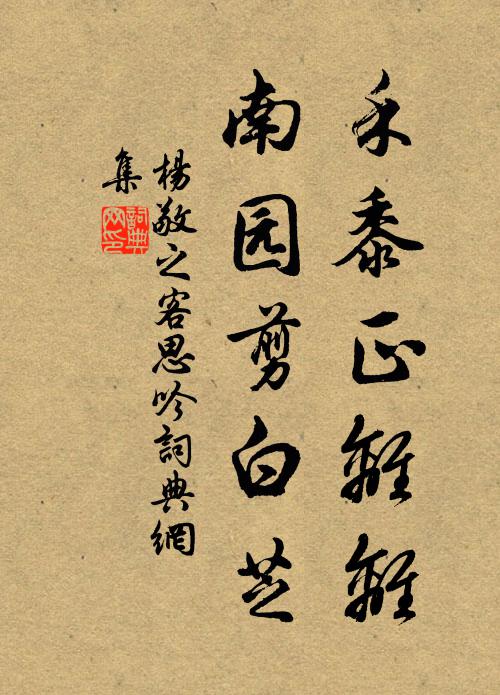 禾黍正離離
南园剪白芝
楊敬之客思吟詞典網
集
詞典
网印